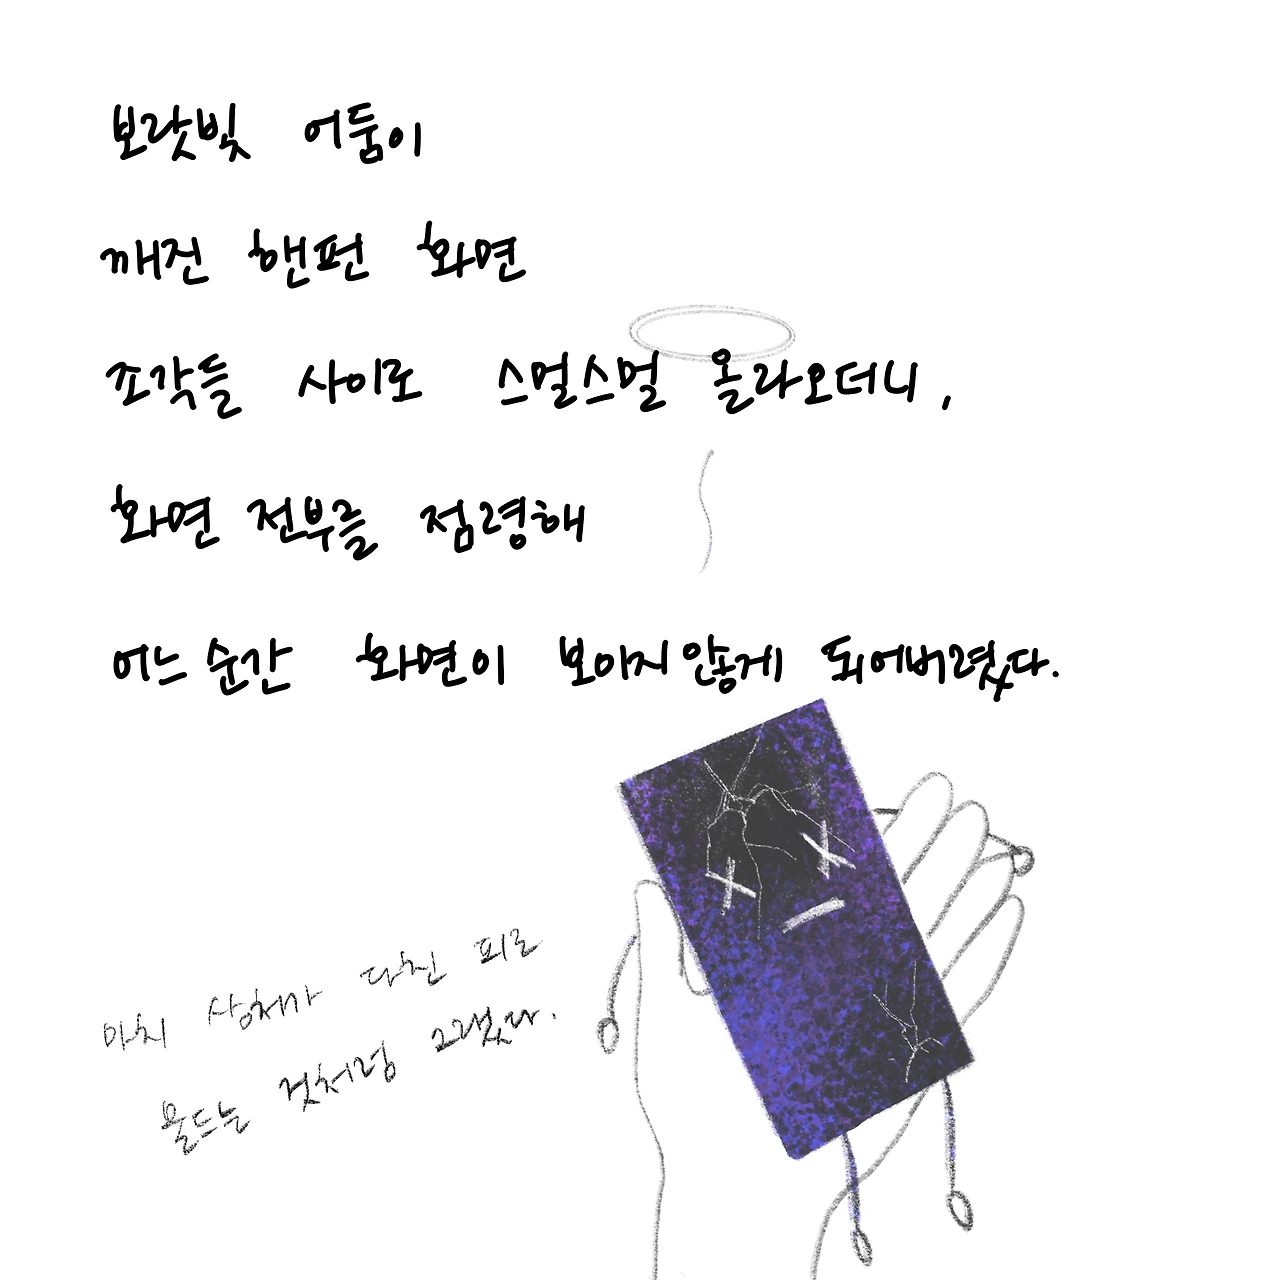 보랏빛 어둠이
깨진 핸펀 화면
조각들 사이로 스멀스멀 올라오더니,
화면 전부를 점령해
어느 순간 화면이 보이지 않게 되어버렸다.
마치 상처가 다친 피로
물드는 것처럼 그랬다.